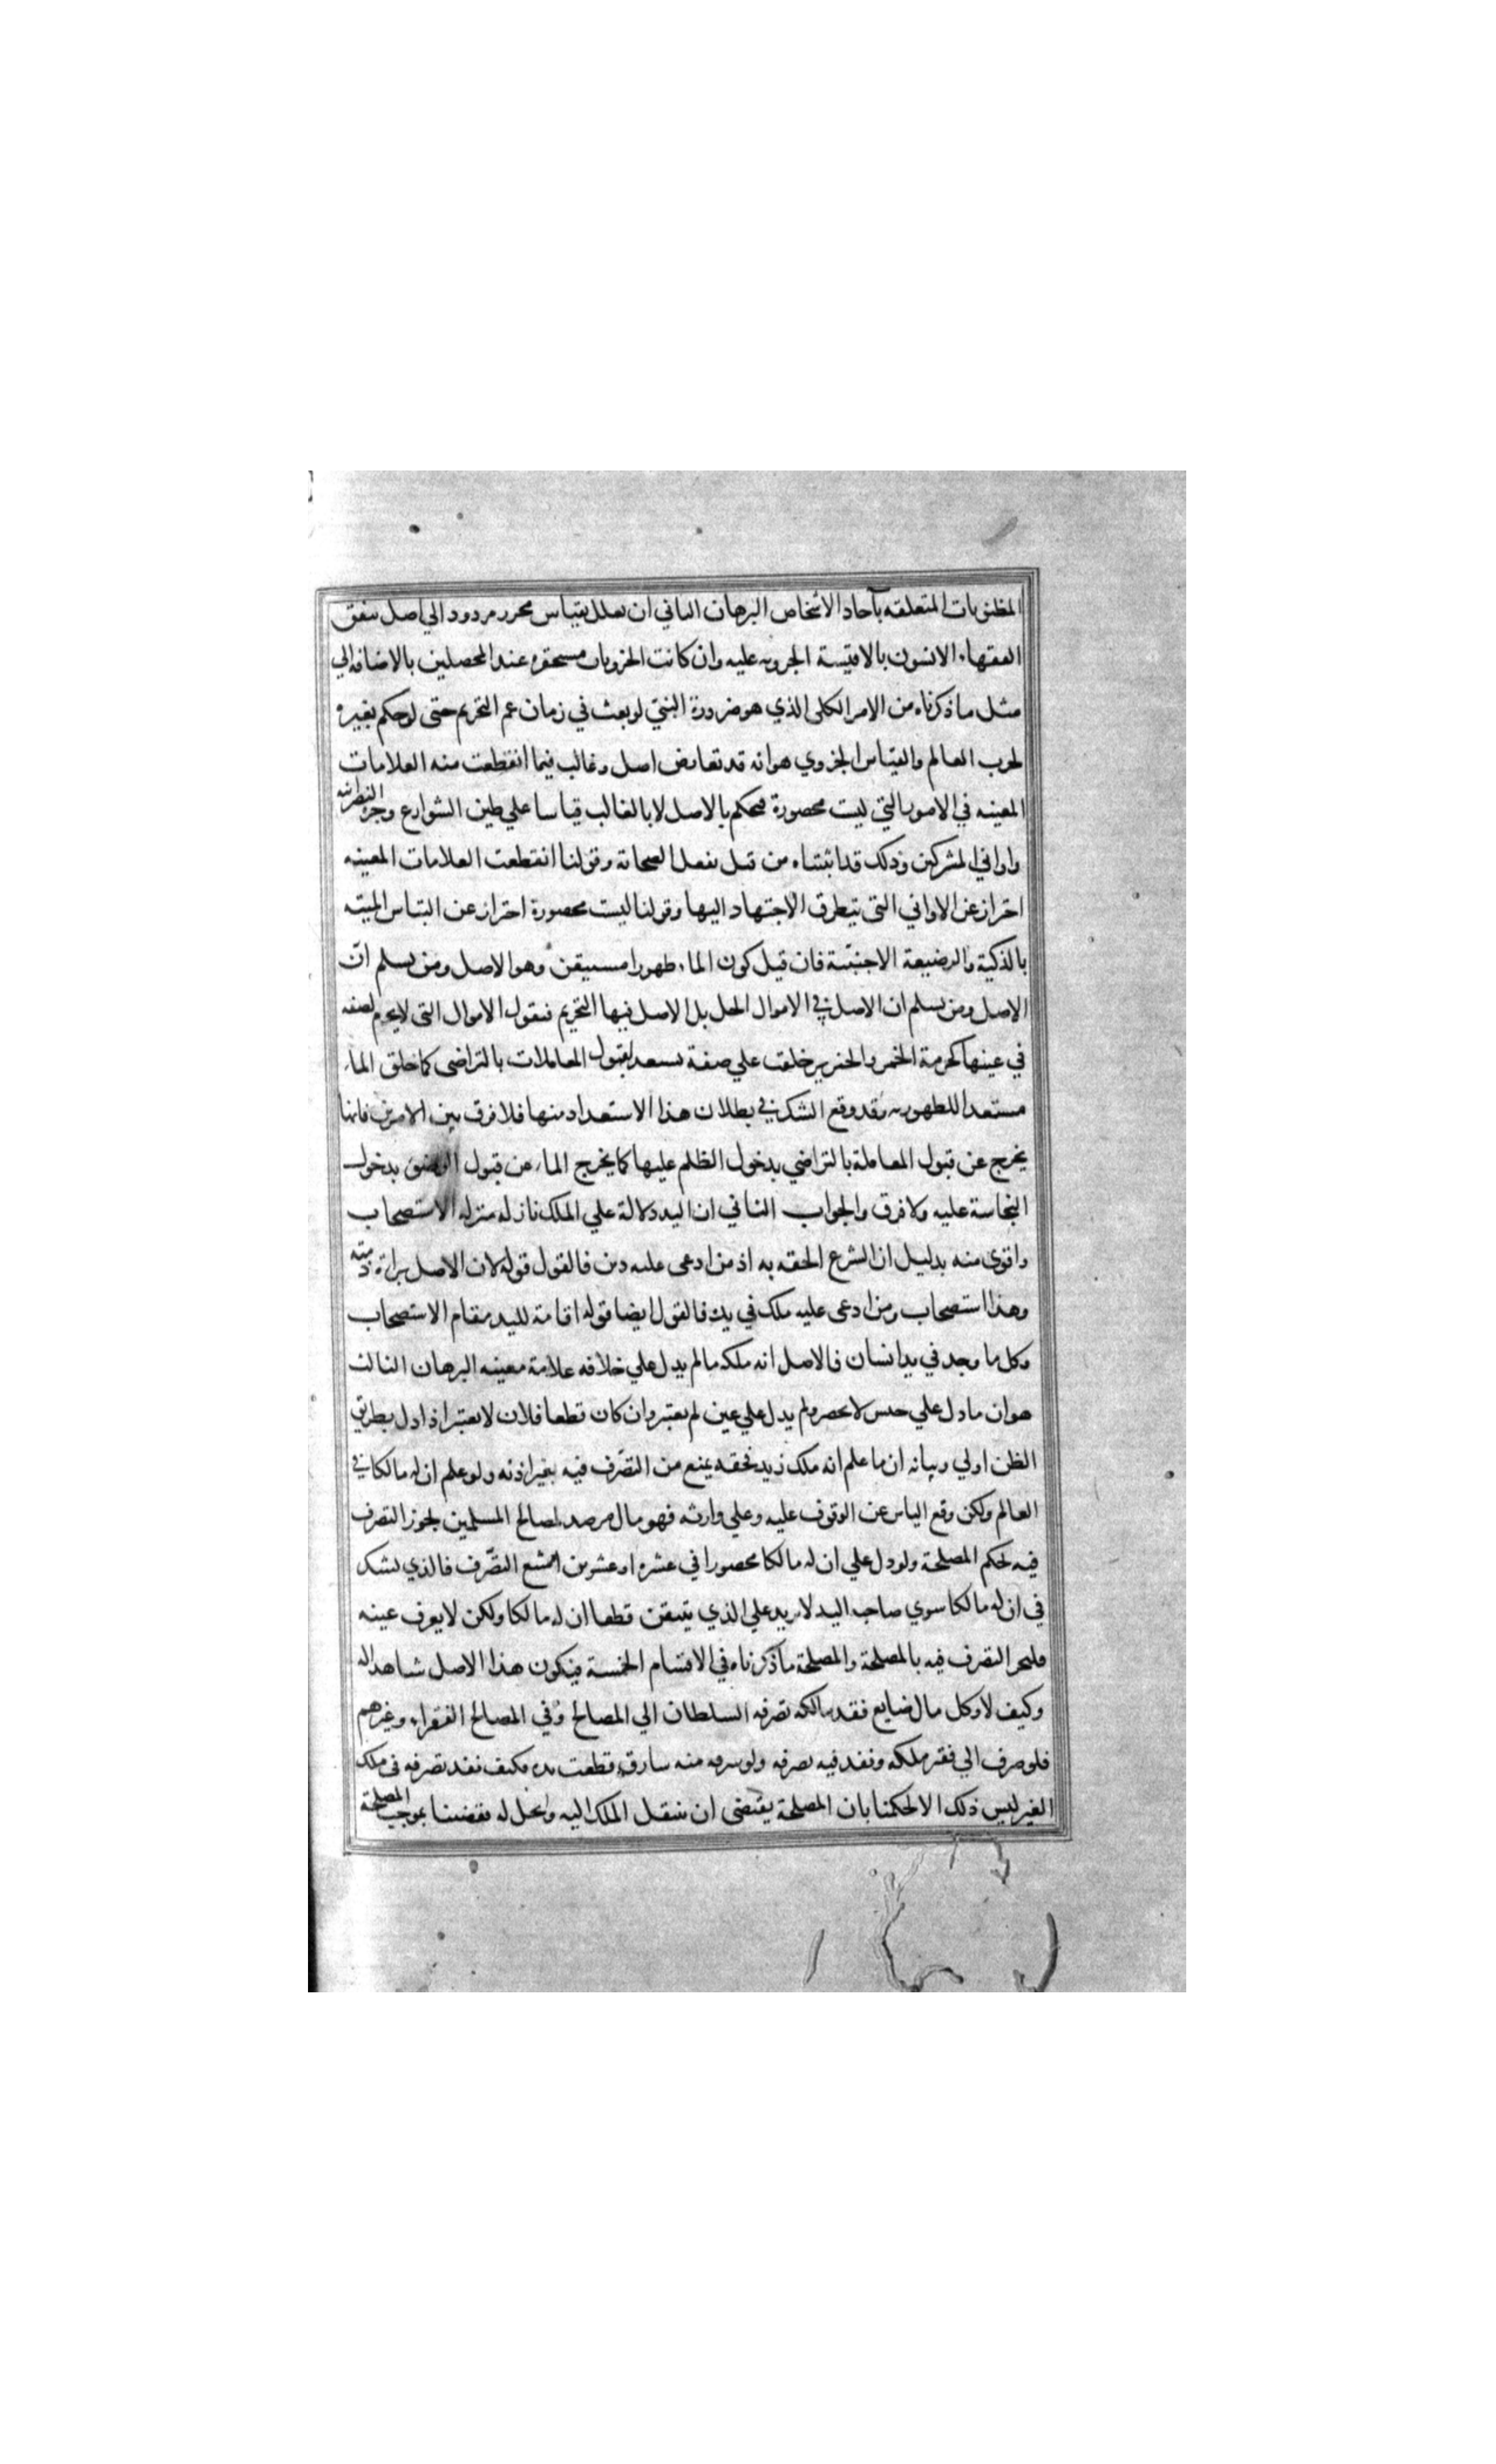 المظنونات المتعلقه بآحاد الأشخاص البرهان الثاني ان يعلل بقياس محرر مردود الي اصل يتفق
الفقهاء الانسون بالاقيسة الجزويه عليه وان كانت الجزويات مستحقره عند المحصلين بالاضافه الي
مثل ما ذكرناه من الامر الكلي الذي هو ضرورة النبي لو بعث في زمان عم التحريم حتى لو حكم بغيره
لخرب العالم والقياس الجزوي هو انه قد تعارض اصل وغالب فيما انقطعت منه العلامات
المعينه في الامور التي ليست محصورة فيحكم بالاصل لا بالغالب قياسا علي طين الشوارع وجرة النصرانيه
واواني المشركين وذلك قد اثبتناه من قبل بفعل الصحابة وقولنا انقطعت العلامات المعينه
احتراز عن الاواني التي يتطرق الاجتهاد اليها وقولنا ليست محصورة احتراز عن التباس الميته
بالذكية والرضيعة الاجنبية فان قيل كون الماء طهورا مستيقن وهو الاصل ومن يسلم انّ
الاصل ومن يسلم ان الاصل في الاموال الحل بل الاصل فيها التحريم فنقول الاموال التي لا يحرم لصفه
في عينها كحرمة الخمر والخنزير خلقت علي صفة يستعد لقبول المعاملات بالتراضي كما خلق الماء
مستعدا للطهوريه وقد وقع الشك في بطلان هذا الاستعداد منها فلا فرق بين الامرين فانها
يخرج عن قبول المعاملة بالتراضي بدخول الظلم عليها كما يخرج الماء عن قبول الوضوء بدخول
النجاسة عليه ولا فرق والجواب الثاني ان اليد دلالة علي الملك نازله منزله الاستصحاب
واقوي منه بدليل ان الشرع الحقه به اذ من ادعى عليه دين فالقول قوله لان الاصل براة ذمته
وهذا استصحاب ومن ادعى عليه ملك في يده فالقول ايضا قوله اقامة لليد مقام الاستصحاب
وكل ما وجد في يد انسان فالاصل انه ملكه ما لم يدل علي خلافه علامة معينه البرهان الثالث
هو ان ما دل علي جنس لا يحصر ولم يدل علي عين لم يعتبر وان كان قطعا فلان لا يعتبر اذا دل بطريق
الظن اولي وبيانه ان ما علم انه ملك زيد فحقه يمنع من التصّرف فيه بغير اذنه ولو علم ان له مالكا في
العالم ولكن وقع الياس عن الوقوف عليه وعلي وارثه فهو مال مرصد لمصالح المسلمين يجوز التصرف
فيه بحكم المصلحة ولو دل علي ان له مالكا محصورا في عشره او عشرين امتنع التصّرف فالذي نشك
في ان له مالكا سوي صاحب اليد لا يزيد علي الذي يتيقن قطعا ان له مالكا ولكن لا يعرف عينه
فليجز التصرف فيه بالمصلحة والمصلحة ما ذكرناه في الاقسام الخمسة فيكون هذا الاصل شاهدا له
وكيف لا وكل مال ضايع فقد مالكه تصرفه السلطان الي المصالح وفي المصالح الفقراء وغيرهم
فلو صرف الي فقير ملكه ونفذ فيه تصرفه ولو سرقه منه سارق قطعت يده فكيف نفذ تصرفه في ملك
الغير ليس ذلك الا لحكمنا بان المصلحة يقتضى ان ينتقل الملك اليه ويحل له فقضينا بموجب المصلحة